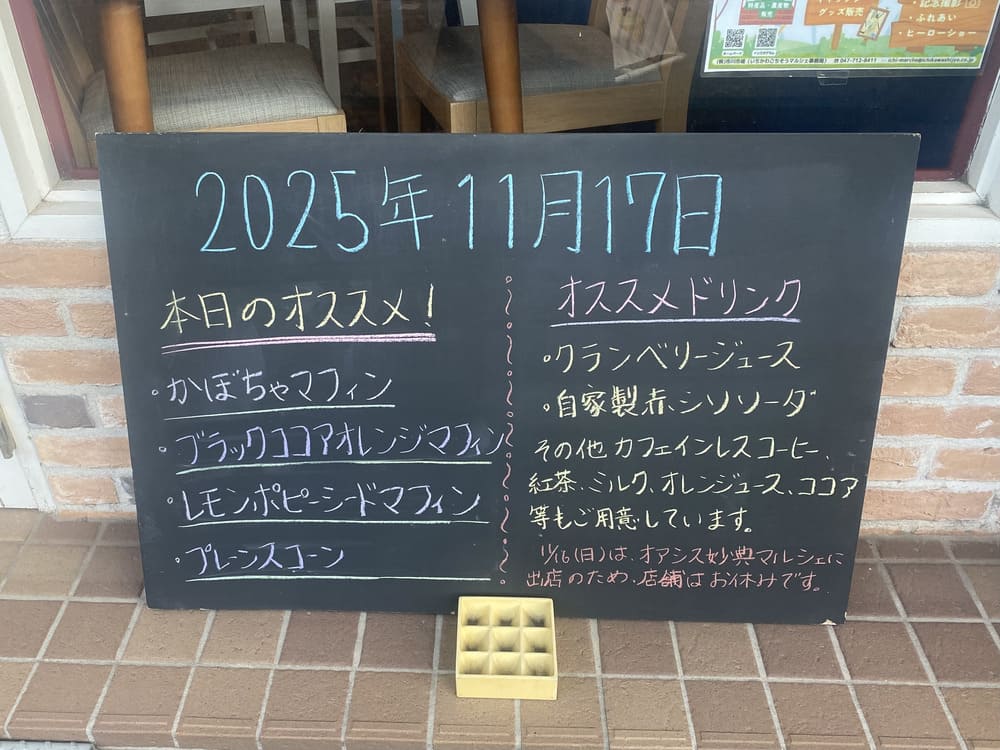 特産品・農産物
販売
グッズ販売
・記念撮影
・ふれあい
・ヒーローショー
ホームページ
インスタグラム
(株)市川市場(いちかわごちそうマルシェ事務局)
047-712-8411
ichi-marche@ichikawashijyo.co.jp
2025年11月17日
本日のオススメ!
・かぼちゃマフィン
・ブラックココアオレンジマフィン
・レモンポピーシードマフィン
・プレーンスコーン
オススメドリンク
・クランベリージュース
・自家製赤シソソーダ
その他カフェインレスコーヒー、
紅茶、ミルク、オレンジュース、ココア
等もご用意しています。
11/16(日)は、オアシス妙典マルシェに
出店のため、店舗はお休みです。